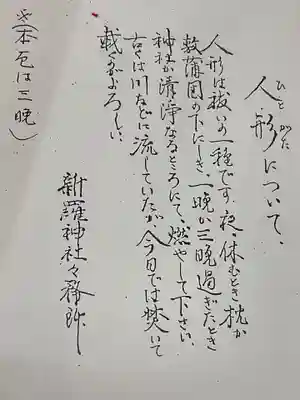 人形について、
ひとがた
人形は祓いの一種です。夜休むとき枕か
敷蒲団の下にしき、一晩か三晩過ぎたとき
神社か清浄なるところにて、燃やして下さい。
古くは川などに流していたが今日では焚いて
戴くがよろしい、
新羅神社々務所
(本色は三晩)